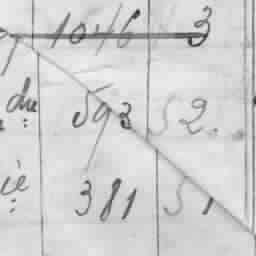 1046 3
du 593 52..
ie 381 51